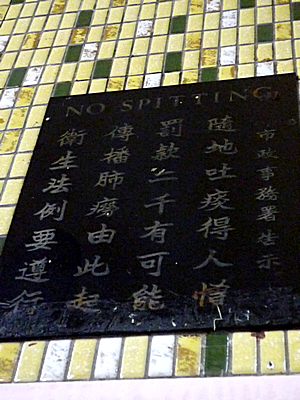 NO SPITTING
市政事務署告示
隨地吐痰得人憎
罰款二千有可能
傳播肺癆由此起
衛生法例要遵行